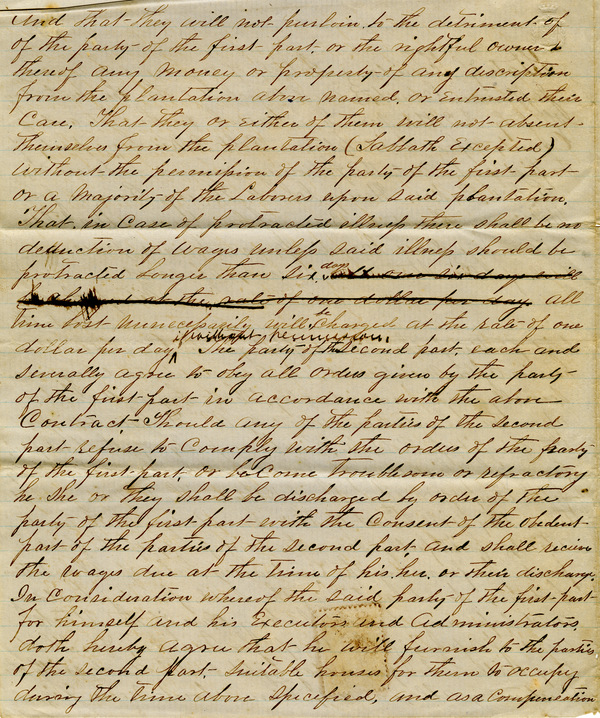 And that they will not purloin to the detriment of
of the party of the first part. or the rightful owner
thereof any Money or property of any discription
from the plantation abov named. or entrusted their
Care. That they or either of them will not absent
themselves from the plantation (Sabbath Excepted)
without the permission of the party of the first part
or a Majority of the Laborers upon said plantation.
That in Case of protracted illness there shall be no
deduction of wages unless said illness should be
protracted longer than six days one six days will
at the rate of one dollar per day all
time lost unnecessarily will be charged at the rate of one
dollar per day if without permission. The party of the second part. each and
severally agree to obey all orders given by the party
of the first part in accordance with the above
Contract Should any of the parties of the second
part refuse to Comply with the orders of the party
of the first part. or become troublesom or refractory
he She or they shall be discharged by order of the
party of the first part with the Consent of the obedient
part of the parties of the second part and shall receive
the wages due at the time of his, her. or their discharge.
In Consideration whereof the said party of the first part
for himself and his Executors and Administrators
doth hereby agree that he will furnish to the parties
of the second part. suitable houses for them to occupy
during the time abov specified, and as a Compensation